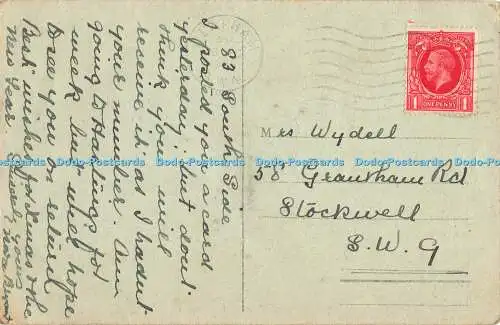 83 South Side
I posted you a card
yesterday, but dont
think you will
receive it as I hadnt
your number. Am
going to Hastings for
week but will hope
to see you on return
Best wishes for Xmas & the
New Year
yours
Mrs Wydell
58 Grantham Rd
Stockwell
S.W. 9
POSTAGE REVENUE
1 ONE PENNY 1
Dodo-Postcards Dodo-Postcards Dodo-Postcards Dodo-Postcards Dodo-Postcards Dodo-Postcards